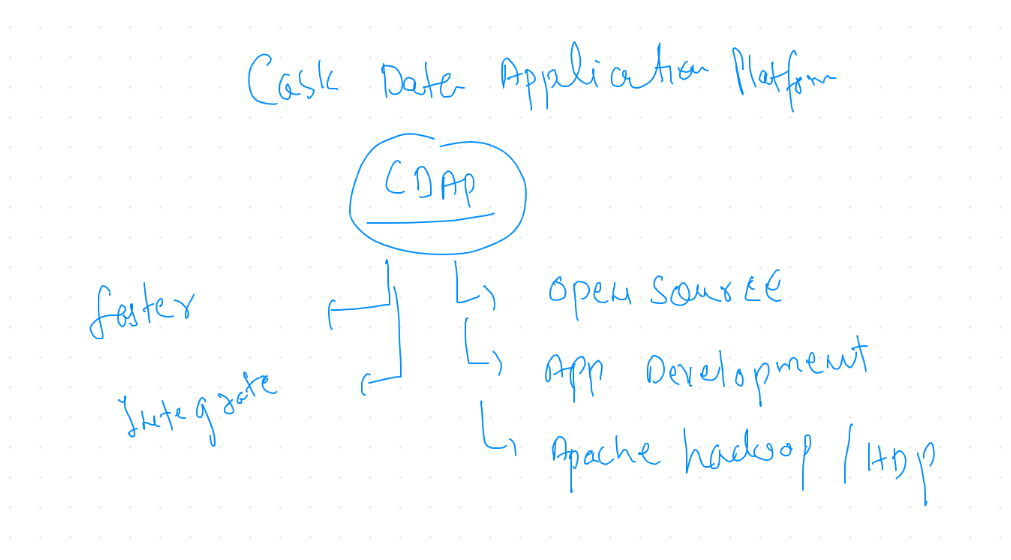 Cask Data Application Platform
CDAP
faster
Integrate
open source
App Development
Apache hadoop / HDP